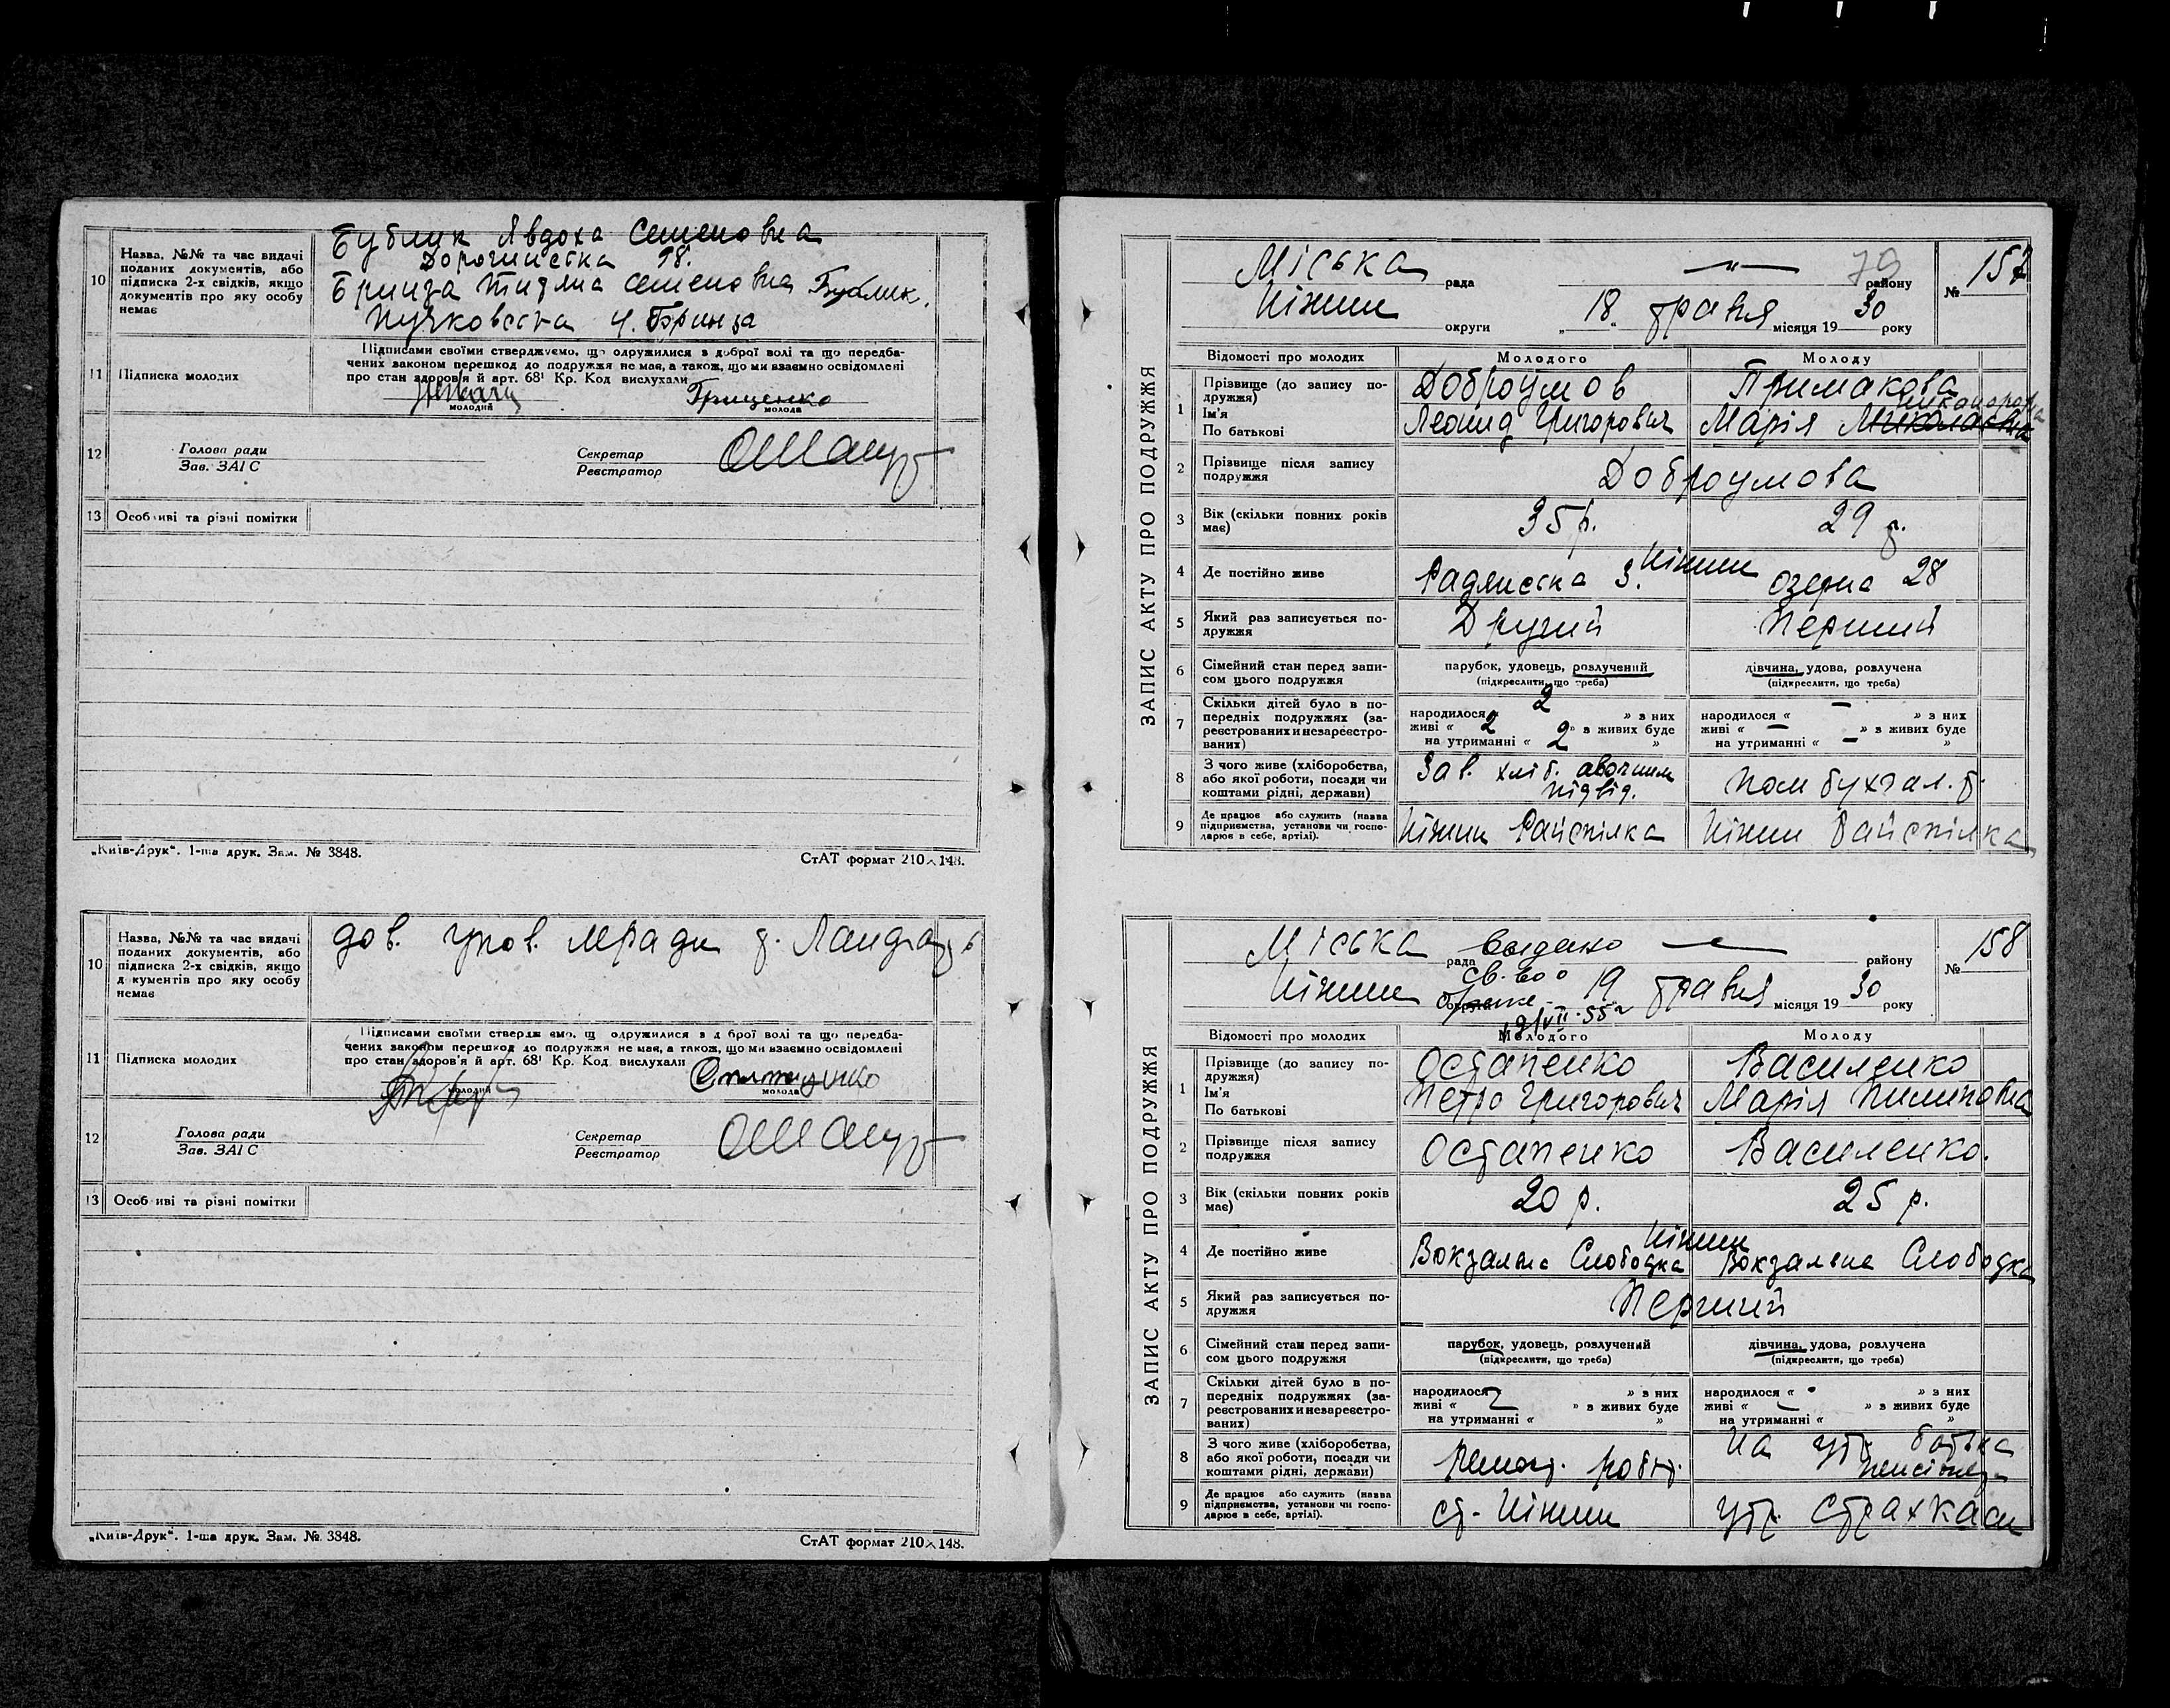 10
Назва, №№ та час видачі
поданих документів, або
підписка 2-х свідків, якщо
документів про яку особу
немає
Бублик Явдоха Семеновна
98.
Семеновна Бублик.
Бринза
11
Підписка молодих
Підписами своїми стверджуємо, що одружилися в доброї волі та що передба-
чених законом перешкод до подружжя не має, а також, що ми взаємно освідомлені
про стан здоров'я й арт. 68¹ Кр. Код вислухали
Грищенко
молодий
молода
12
Голова ради
Зав. ЗАГС
Секретар
Реєстратор
13
Особливі та різні помітки
„Київ-Друк“. 1-ша друк. Зам. № 3848.
СтАТ формат 210×148.
10
Назва, №№ та час видачі
поданих документів, або
підписка 2-х свідків, якщо
документів про яку особу
немає
дов.
11
Підписка молодих
Підписами своїми стверджуємо, що одружилися в доброї волі та що передба-
чених законом перешкод до подружжя не має, а також, що ми взаємно освідомлені
про стан здоров'я й арт. 68¹ Кр. Код вислухали
молодий
молода
12
Голова ради
Зав. ЗАГС
Секретар
Реєстратор
13
Особливі та різні помітки
„Київ-Друк“. 1-ша друк. Зам. № 3848.
СтАТ формат 210×148.
ЗАПИС АКТУ ПРО ПОДРУЖЖЯ
Міська рада — „ — району № 157
79
Ніжин округи „18„ травня місяця 1930 року
Відомості про молодих
Молодого
Молоду
1
Прізвище (до запису по-
дружжя)
Ім'я
По батькові
Доброумов
Леонид Григорович
Примакова
Никанорова
Марія Миколаєвна
2
Прізвище після запису
подружжя
Доброумова
3
Вік (скільки повних років
має)
35 р.
29 р.
4
Де постійно живе
Ніжин
Радянська 3.
Озерна 28
5
Який раз записується по-
дружжя
Другий
Перший
6
Сімейний стан перед запи-
сом цього подружжя
парубок, удовець, розлучений
(підкреслити, що треба)
дівчина, удова, розлучена
(підкреслити, що треба)
7
Скільки дітей було в по-
передніх подружжях (за-
реєстрованих и незареєстро-
ваних)
народилося „ 2 » з них
живі « 2 » в живих буде
на утриманні « 2 »
народилося « — » з них
живі « — » в живих буде
на утриманні « — »
8
З чого живе (хліборобства,
або якої роботи, посади чи
коштами рідні, держави)
Зав. хліб. овочним
підвід.
Пом бухгал.
9
Де працює або служить (назва
підприємства, установи чи госпо-
дарює в себе, артілі).
Ніжин Райспілка
Ніжин Райспілка
ЗАПИС АКТУ ПРО ПОДРУЖЖЯ
Міська рада Выдано — району № 158
св-во
Ніжин округи 19 травня місяця 1930 року
Відомості про молодих
Молодого
Молоду
1
Прізвище (до запису по-
дружжя)
Ім'я
По батькові
Остапенко
Петро Григорович
Василенко
Марія Пилиповна
2
Прізвище після запису
подружжя
Остапенко
Василенко.
3
Вік (скільки повних років
має)
20 р.
25 р.
4
Де постійно живе
Ніжин
Вокзальна Слободка
Вокзальна Слободка
5
Який раз записується по-
дружжя
Перший
6
Сімейний стан перед запи-
сом цього подружжя
парубок, удовець, розлучений
(підкреслити, що треба)
дівчина, удова, розлучена
(підкреслити, що треба)
7
Скільки дітей було в по-
передніх подружжях (за-
реєстрованих и незареєстро-
ваних)
народилося » з них
живі « » в живих буде
на утриманні « »
народилося « » з них
живі « » в живих буде
на утриманні « »
8
З чого живе (хліборобства,
або якої роботи, посади чи
коштами рідні, держави)
ремонт. робіт.
На утр. батька
пенсіонер
9
Де працює або служить (назва
підприємства, установи чи госпо-
дарює в себе, артілі).
ст. Ніжин
утр. Страхкаси